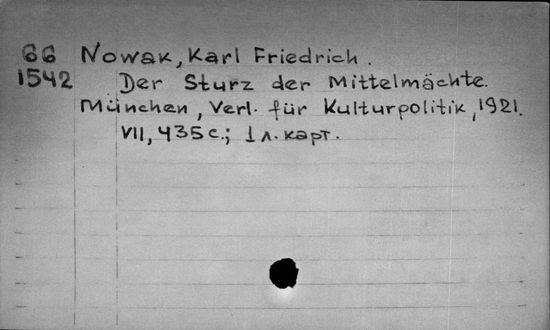 66 Nowak, Karl Friedrich.
1542 Der Sturz der Mittelmächte.
München, Verl. für Kulturpolitik, 1921.
VII, 435 с.; 1 л. карт.